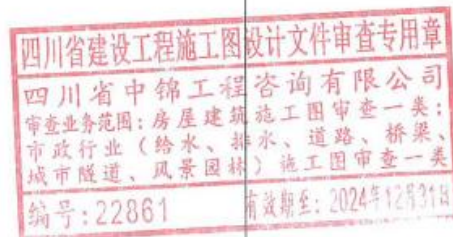 四川省建设工程施工图设计文件审查专用章
四川省中锦工程咨询有限公司
审查业务范围：房屋建筑施工图审查一类；
市政行业（给水、排水、道路、桥梁、
城市隧道、风景园林）施工图审查一类
编号：22861 有效期至：2024年12月31日